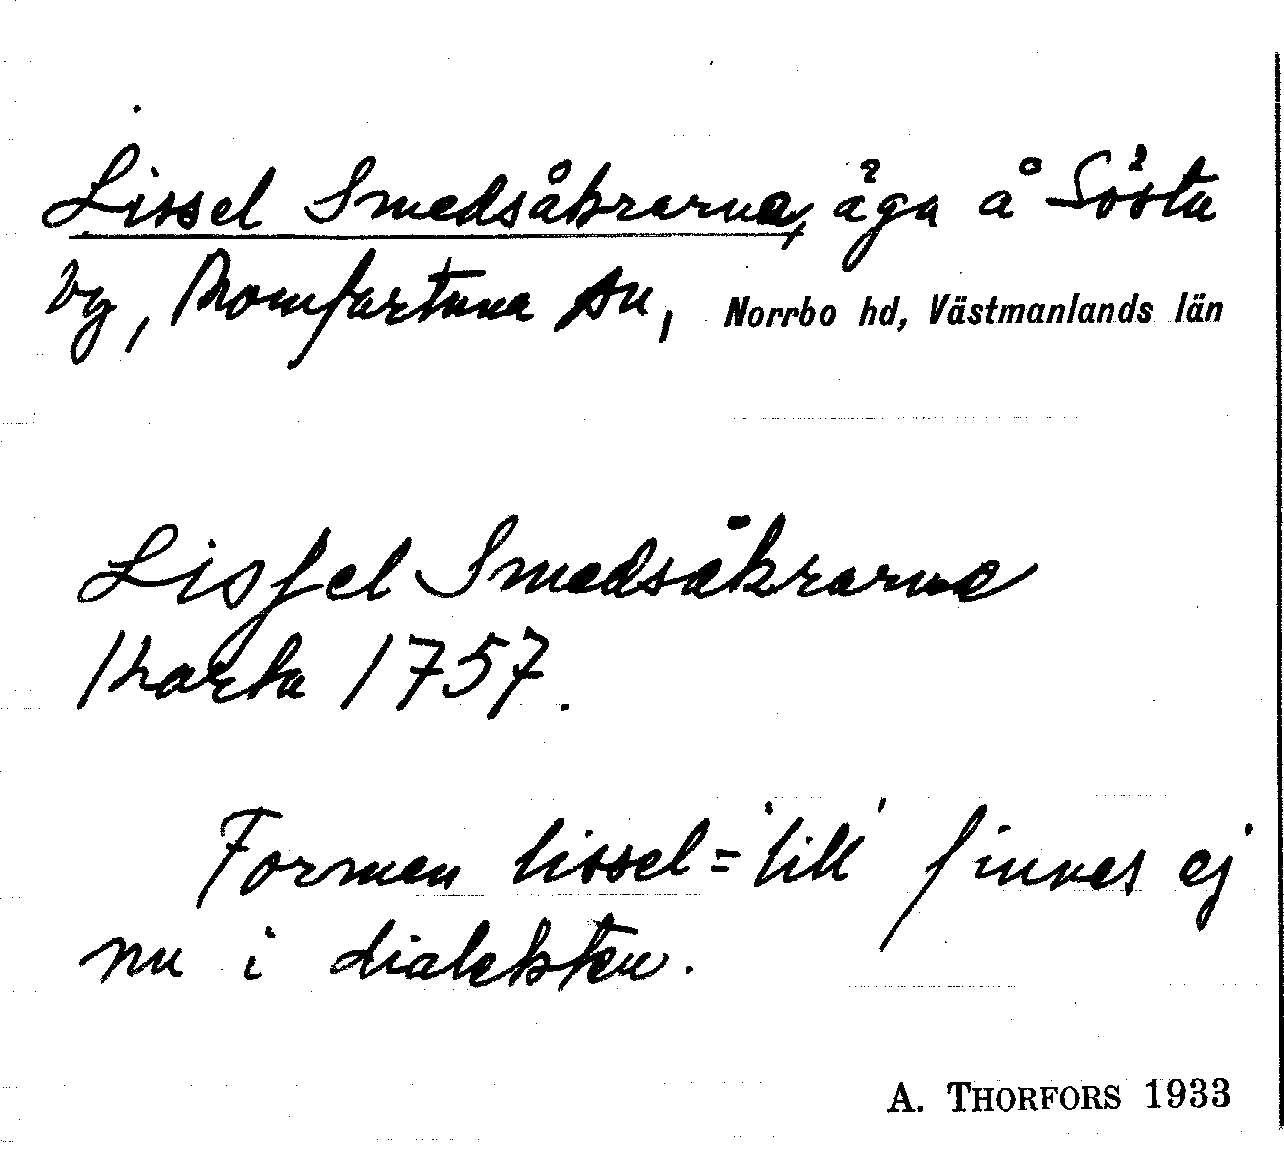 Lissel Smedsåkrarna, äga å Sösta
by, Romfartuna sn, Norrbo hd, Västmanlands län
Lissel Smedsåkrarna
Karta 1757.
Formen lissel = 'lill' finnes ej
nu i dialekten.
A. THORFORS 1933